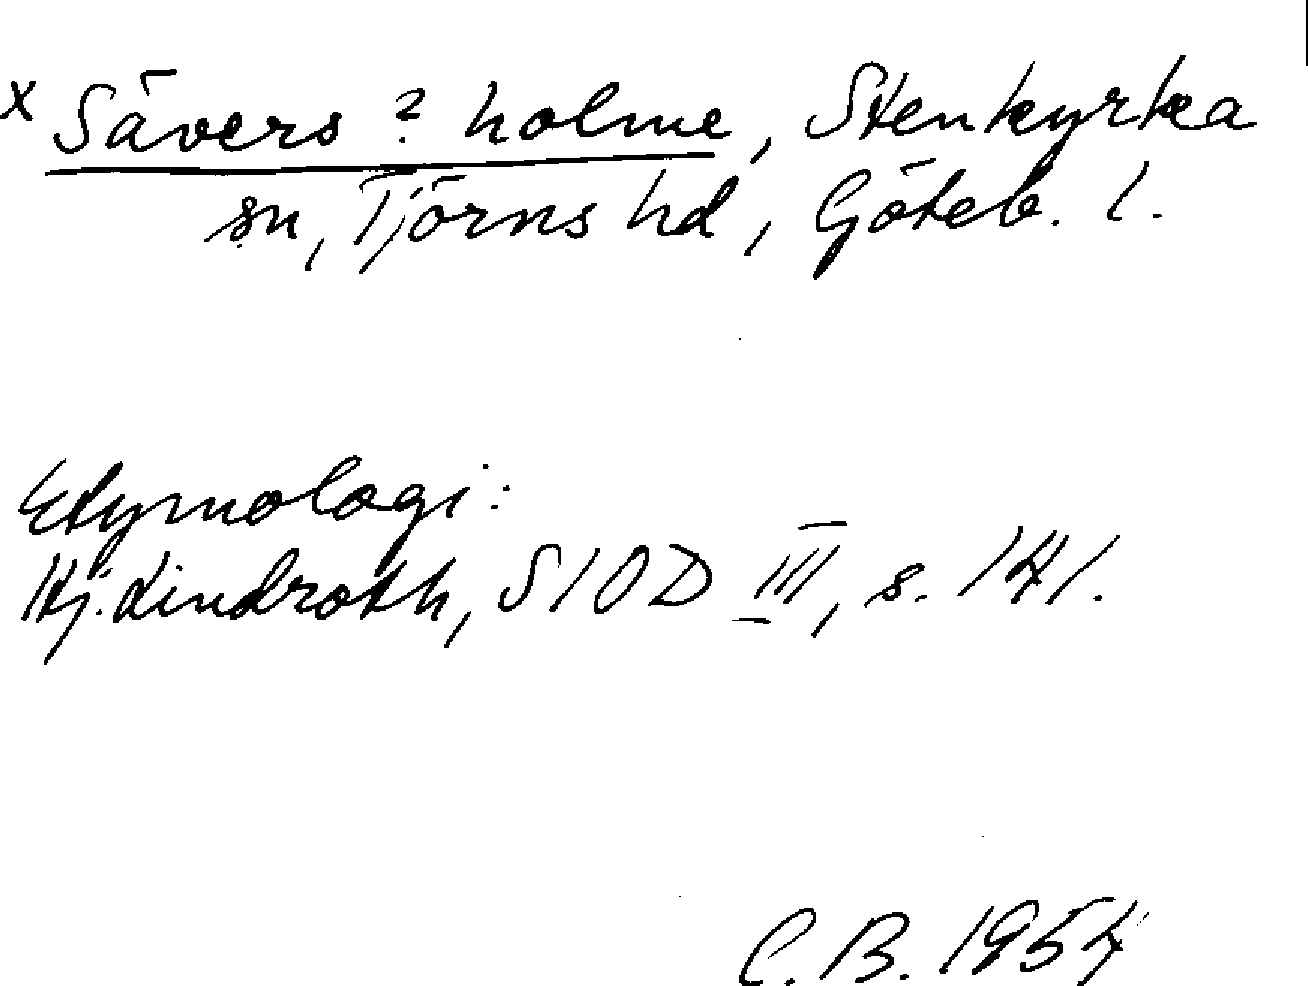 x Sävers ? holme, Stenkyrka
sn, Tjörns hd, Göteb. l.
Etymologi:
Hj. Lindroth, SIOD III, s. 141.
C. B. 1954